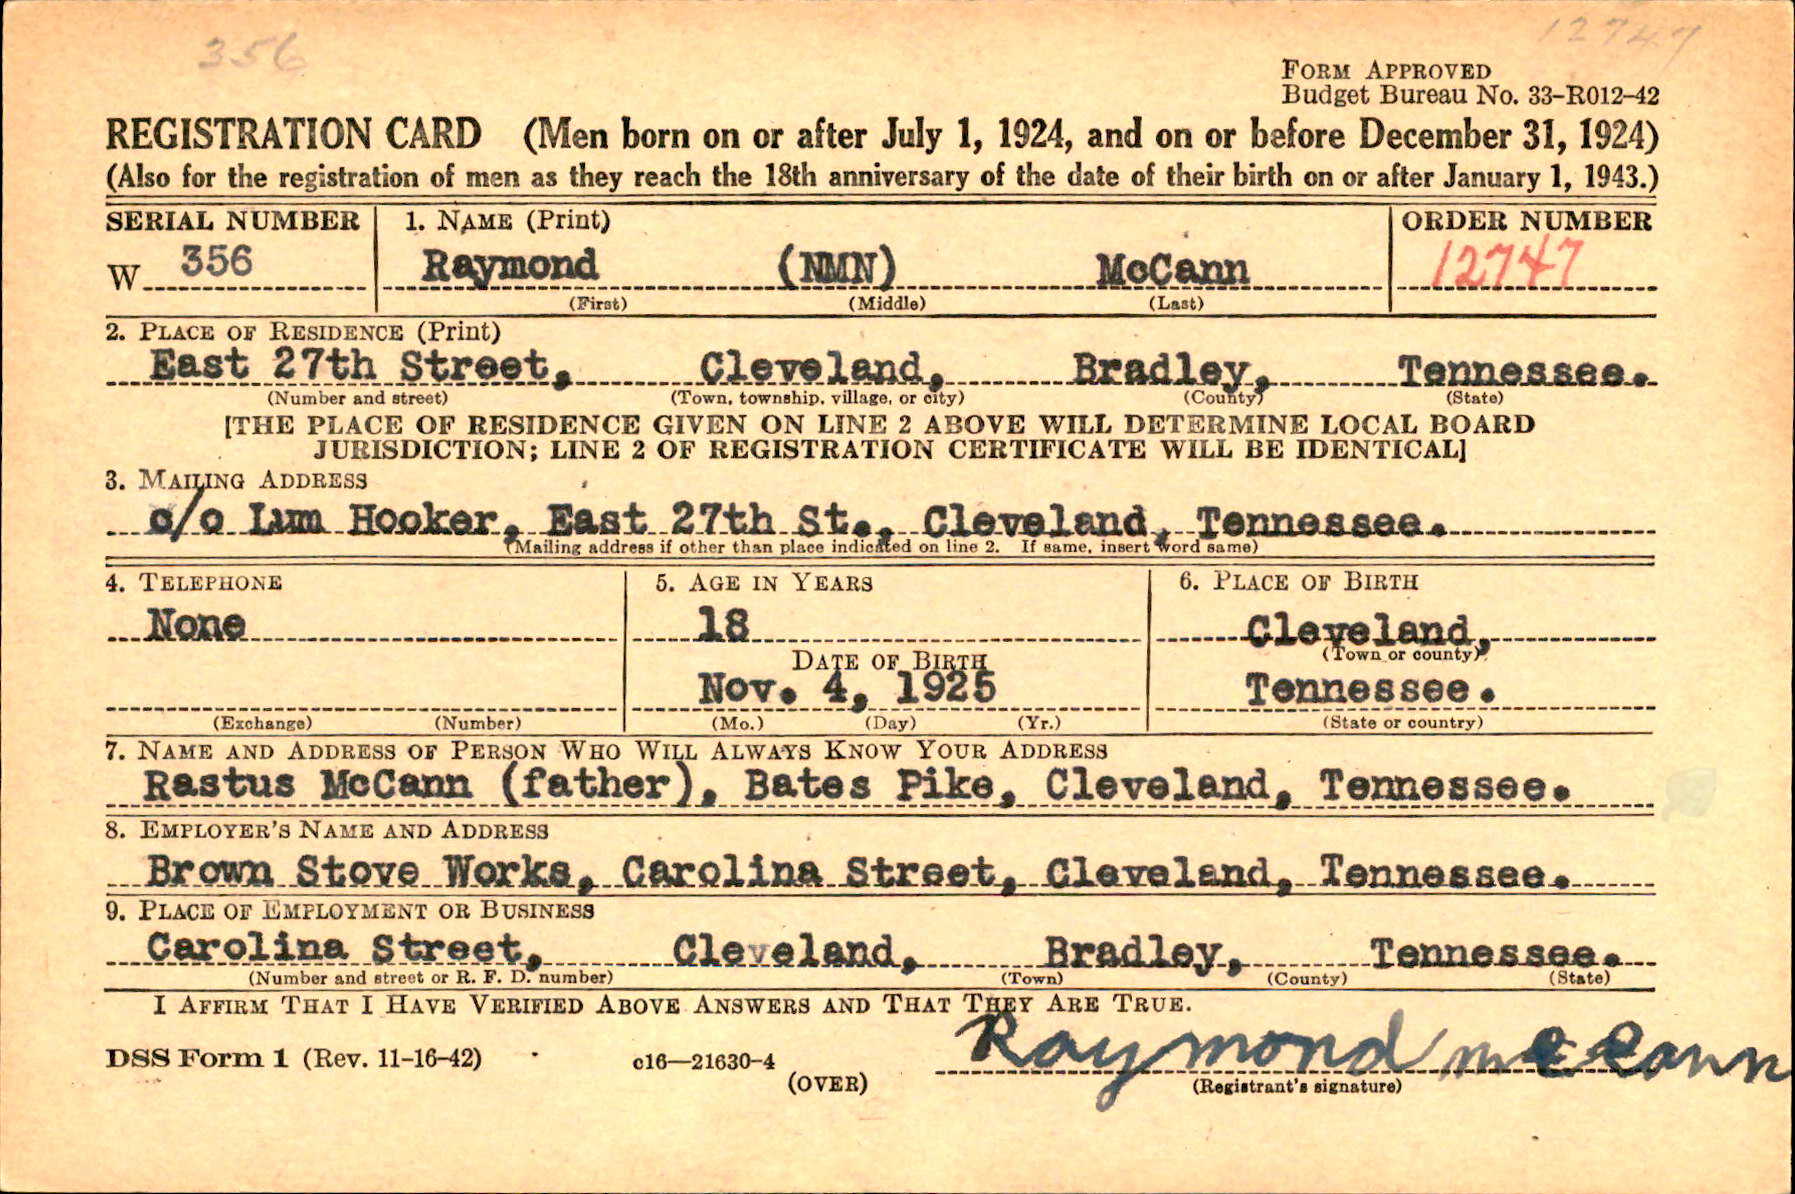 356
12747
FORM APPROVED
Budget Bureau No. 33–R012–42
REGISTRATION CARD (Men born on or after July 1, 1924, and on or before December 31, 1924)
(Also for the registration of men as they reach the 18th anniversary of the date of their birth on or after January 1, 1943.)
SERIAL NUMBER 1. NAME (Print) ORDER NUMBER
W 356 Raymond (NMN) McCann 12747
(First) (Middle) (Last)
2. PLACE OF RESIDENCE (Print)
East 27th Street, Cleveland, Bradley, Tennessee.
(Number and street) (Town, township, village, or city) (County) (State)
[THE PLACE OF RESIDENCE GIVEN ON LINE 2 ABOVE WILL DETERMINE LOCAL BOARD
JURISDICTION; LINE 2 OF REGISTRATION CERTIFICATE WILL BE IDENTICAL]
3. MAILING ADDRESS
c/o Lum Hooker, East 27th St., Cleveland, Tennessee.
(Mailing address if other than place indicated on line 2. If same, insert word same)
4. TELEPHONE 5. AGE IN YEARS 6. PLACE OF BIRTH
None 18 Cleveland,
DATE OF BIRTH (Town or county)
Nov. 4, 1925 Tennessee.
(Exchange) (Number) (Mo.) (Day) (Yr.) (State or country)
7. NAME AND ADDRESS OF PERSON WHO WILL ALWAYS KNOW YOUR ADDRESS
Rastus McCann (father), Bates Pike, Cleveland, Tennessee.
8. EMPLOYER'S NAME AND ADDRESS
Brown Stove Works, Carolina Street, Cleveland, Tennessee.
9. PLACE OF EMPLOYMENT OR BUSINESS
Carolina Street, Cleveland, Bradley, Tennessee.
(Number and street or R. F. D. number) (Town) (County) (State)
I AFFIRM THAT I HAVE VERIFIED ABOVE ANSWERS AND THAT THEY ARE TRUE.
DSS Form 1 (Rev. 11–16–42) c16—21630-4 Raymond mcCann
(OVER) (Registrant's signature)